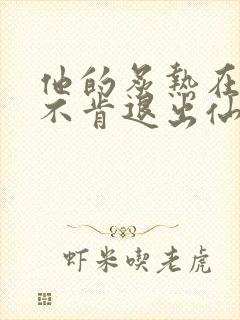 他的炙热在
不肯退出仙
虾米喫老虎